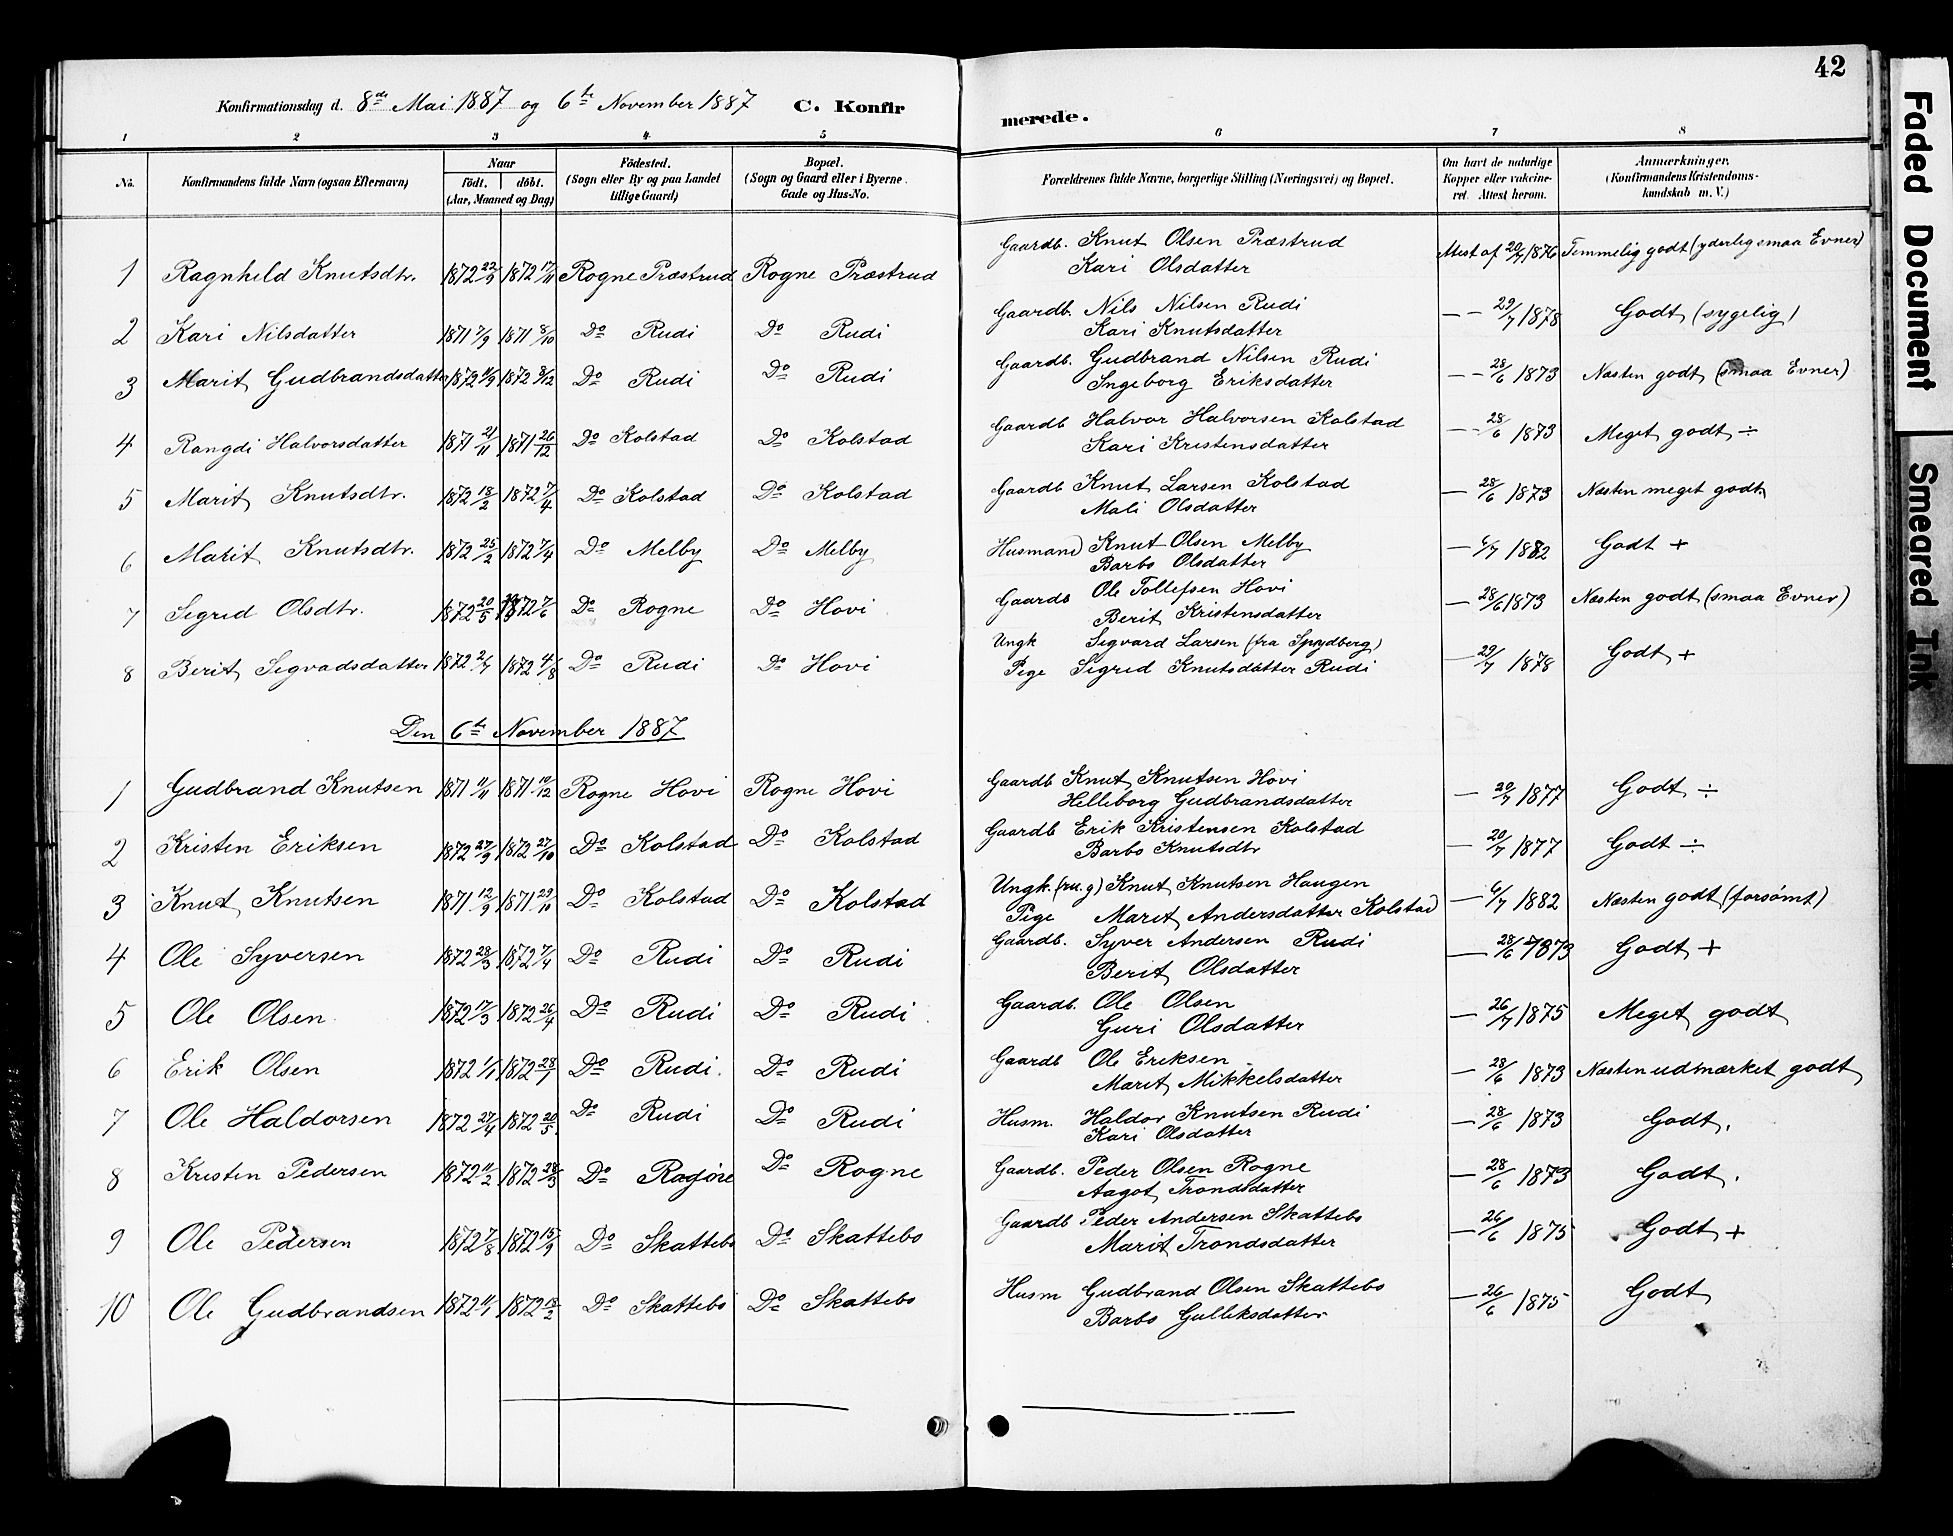 42
Konfirmationsdag d. 8de Mai 1887 og 6te November 1887 C. Konfirmerede.
1 2 3 4 5 6 7 8
No. Konfirmandens fulde Navn (ogsaa Efternavn) Naar födt. döbt. (Aar, Maaned og Dag) Födested. (Sogn eller By og paa Landet tillige Gaard) Bopæl. (Sogn og Gaard eller i Byerne Gade og Hus-No. Forældrenes fulde Navne, borgerlige Stilling (Næringsvei) og Bopæl. Om havt de naturlige Kopper eller vakcineret. Attest herom. Anmærkninger. (Konfirmandens Kristendomskundskab m. V.)
1 Ragnhild Knutsdtr. 1872 22/9 1872 17/11 Rogne Præstrud Rogne Præstrud Gaardb. Knut Olsen Præstrud Attest af 20/7 1876 Temmelig godt (yderlig smaa Evner)
Kari Olsdatter
2 Kari Nilsdatter 1871 7/9 1871 8/10 Do Rudi Do Rudi Gaardb. Nils Nilsen Rudi — — 29/7 1878 Godt (sygelig)
Kari Knutsdatter
3 Marit Gudbrandsdatter 1872 11/9 1872 8/12 Do Rudi Do Rudi Gaardb. Gudbrand Nilsen Rudi — — 28/6 1873 Næsten godt (smaa Evner)
Ingeborg Eriksdatter
4 Rangdi Halvorsdatter 1871 21/11 1871 26/12 Do Kolstad Do Kolstad Gaardb Halvor Halvorsen Kolstad — — 28/6 1873 Meget godt ÷
Kari Kristensdatter
5 Marit Knutsdtr. 1872 18/2 1872 7/4 Do Kolstad Do Kolstad Gaardb Knut Larsen Kolstad — 28/6 1873 Næsten meget godt
Mali Olsdatter
6 Marit Knutsdtr. 1872 25/2 1872 7/4 Do Melby Do Melby Husmand Knut Olsen Melby — 6/7 1882 Godt +
Barbo Olsdatter
7 Sigrid Olsdtr. 1872 20/5 1872 7/6 Do Rogne Do Hovi Gaardb Ole Tollefsen Hovi — 28/6 1873 Næsten godt (smaa Evner)
Berit Kristensdatter
8 Berit Segvadsdatter 1872 2/7 1872 4/8 Do Rudi Do Hovi Ungk Segvard Larsen (fra Spydberg) — 29/7 1878 Godt +
Pige Sigrid Knutsdatter Rudi
Den 6te November 1887
1 Gudbrand Knutsen 1871 11/11 1871 10/12 Rogne Hovi Rogne Hovi Gaardb Knut Knutsen Hovi — 20/7 1877 Godt ÷
Helleborg Gudbrandsdatter
2 Kristen Eriksen 1872 27/9 1872 27/10 Do Kolstad Do Kolstad Gaardb Erik Kristensen Kolstad — 20/7 1877 Godt ÷
Barbo Knutsdtr
3 Knut Knutsen 1871 12/9 1871 29/10 Do Kolstad Do Kolstad Ungk. (nu. g) Knut Knutsen Haugen — 6/7 1882 Næsten godt (forsømt)
Pige Marit Andersdatter Kolstad
4 Ole Syversen 1872 28/3 1872 7/4 Do Rudi Do Rudi Gaardb. Syver Andersen Rudi — 28/6 1873 Godt +
Berit Olsdatter
5 Ole Olsen 1872 17/3 1872 26/4 Do Rudi Do Rudi Gaardb. Ole Olsen — 26/7 1875 Meget godt
Guri Olsdatter
6 Erik Olsen 1872 1/1 1872 28/1 Do Rudi. Do Rudi Gaardb Ole Eriksen — 28/6 1873 Næsten udmærket godt
Marit Mikkelsdatter
7 Ole Haldorsen 1872 27/4 1872 20/5 Do Rudi Do Rudi Husm. Haldor Knutsen Rudi — 28/6 1873 Godt.
Kari Olsdatter
8 Kristen Pedersen 1872 11/2 1872 28/3 Do Rogne Do Rogne Gaardb. Peder Olsen Rogne — 28/6 1873 Godt.
Aagot Trondsdatter
9 Ole Pedersen 1872 7/8 1872 15/9 Do Skattebo Do Skattebo Gaardb Peder Andersen Skattebo — 26/6 1875 Godt +
Marit Trondsdatter
10 Ole Gudbrandsen 1872 11/1 1872 18/2 Do Skattebo Do Skattebo Husm Gudbrand Olsen Skattebo — 26/6 1875 Godt
Barbo Gulliksdatter
Faded Document
Smeared Ink